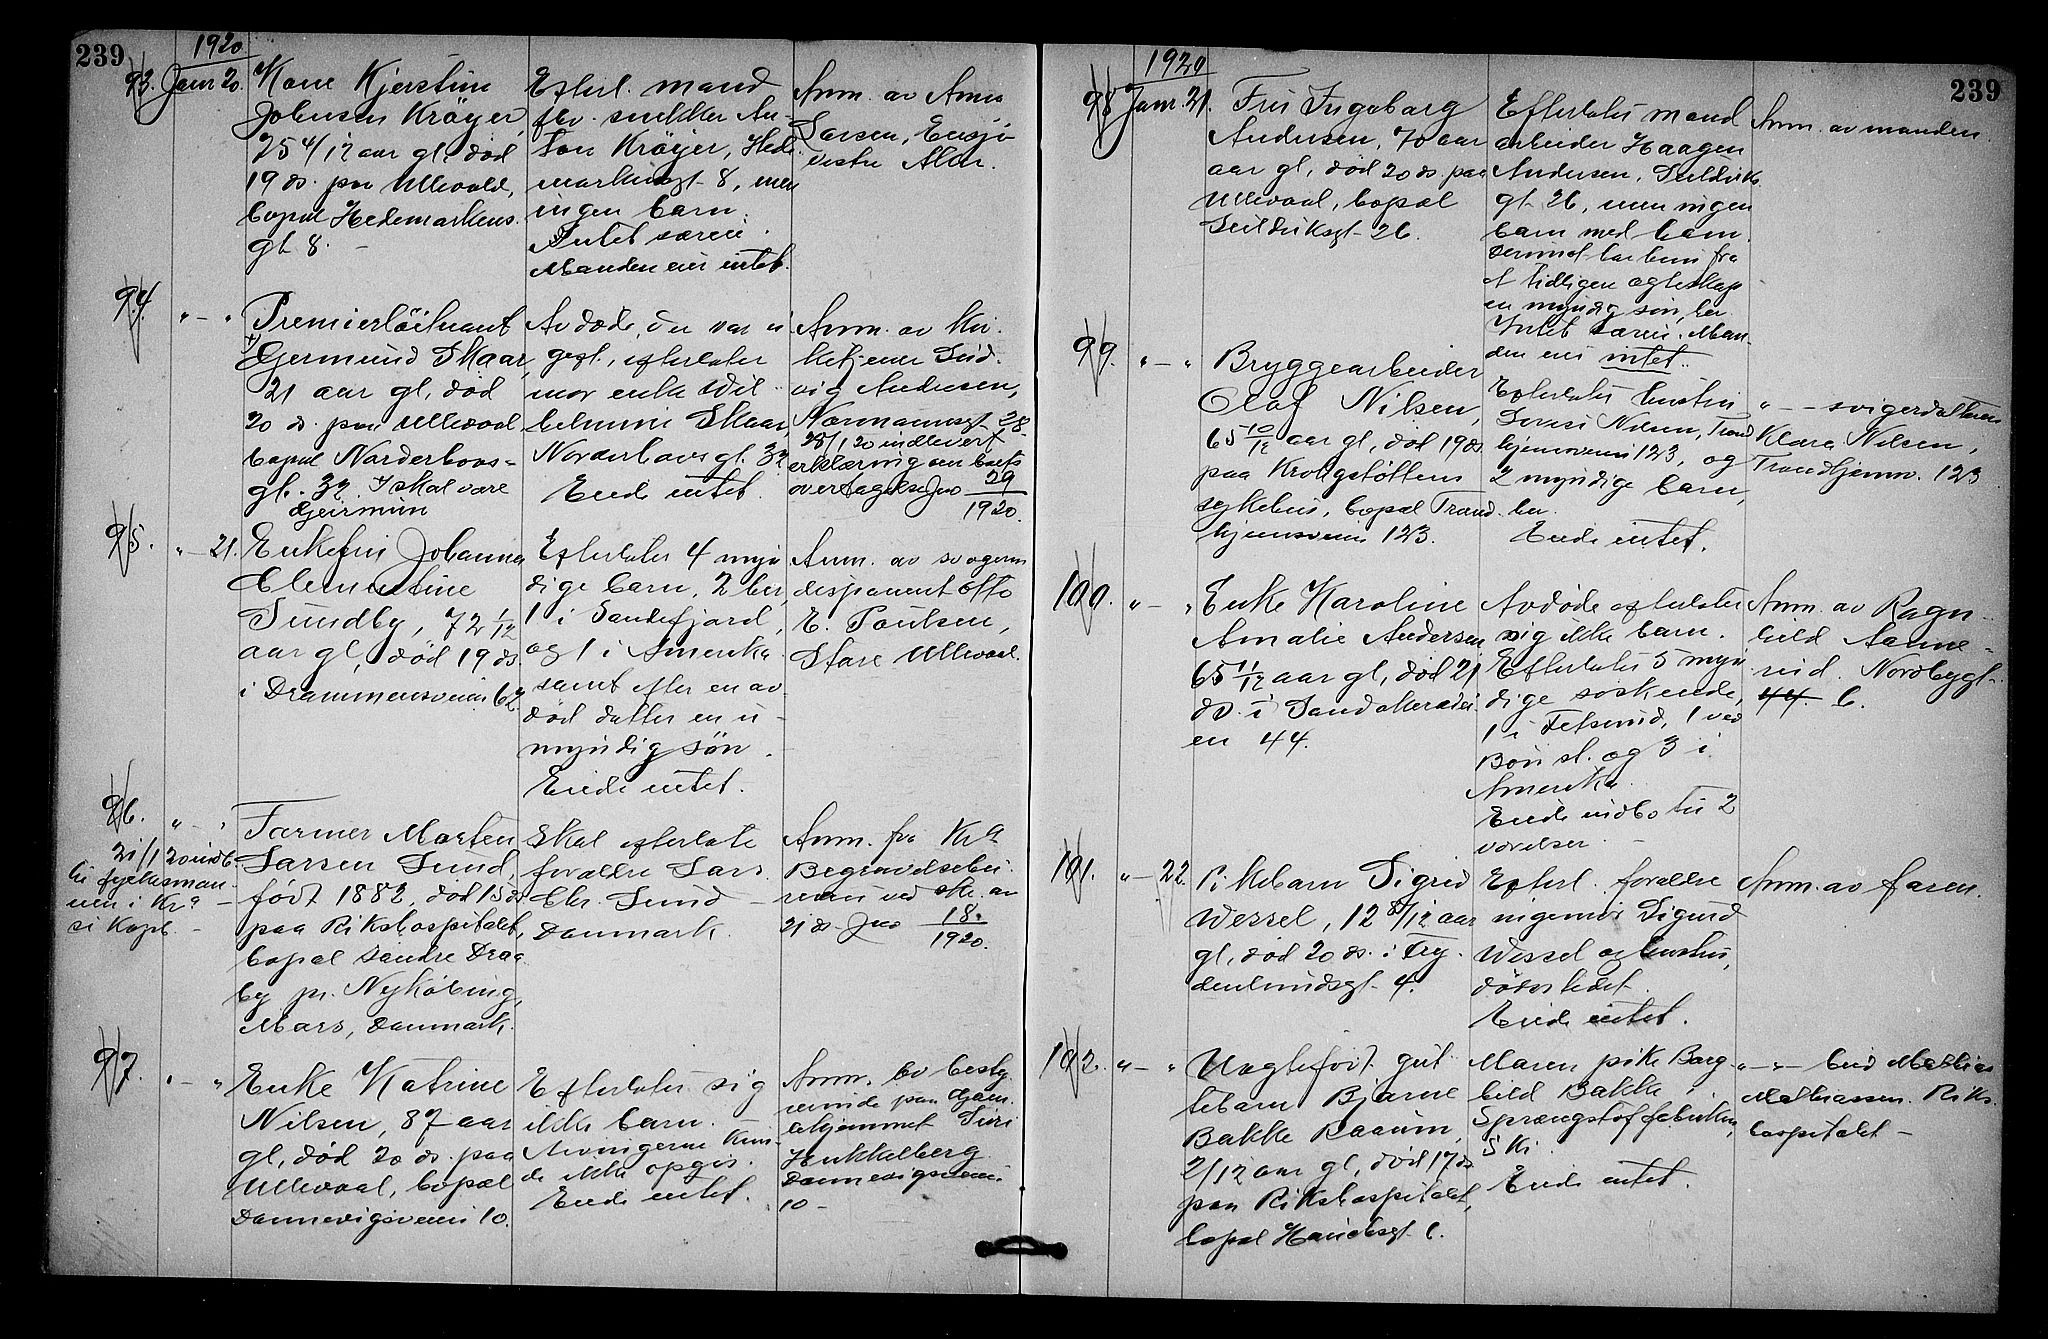 239
1920
93. Janr 20. Kone Kjerstine
Johnsen Kröyer,
25 4/12 aar gl, död
19 ds. paa Ullevaal,
bopæl Hedemarkens
gt 8. –
Efterl. mand
fhv. snekker An-
ton Kröyer, Hede
markensgt 8, men
ingen barn.
Intet særeie.
Manden eier intet.
Anm. av Anna
Larsen, Ensjö
vestre Aker.
94. " – " Premierlöitnant
Gjermund Skaar,
21 aar gl, död
20 ds. paa Ullevaal,
bopæl Norderhovs-
gt. 32. I skal være
Geirmun
Avdøde, der var u
gift, efterlater
mor enke Wil-
helmine Skaar,
Norderhovsgt. 32
Eiede intet.
Anm. av Kir-
ketjener Lud-
vig Andresen,
Normannsgt. 28
28/1 20 indlevert
erklæring om boets
overtagelse Jno 29
1920.
95. " – 21. Enkefru Johanna
Clementine
Sundby, 72 1/12
aar gl, død 19 ds.
i Drammensveien 62
Efterlater 4 myn
dige barn, 2 her,
1 i Sandefjord,
og 1 i Amerika
samt efter en av-
död datter en u-
myndig sön.
Eiede intet.
Anm. av svogeren
disponent Otto
E. Paulsen,
Store Ullevaal.
96. " – " Farmer Morten
Larsen Lund,
født 1882, död 15 ds
paa Rikshospitalet,
bopæl Söndre Draa
by pr. Nyköbing,
Mars, Danmark.
21/1 20 indb.
til fylkesman-
nen i Kra –
se Kopb. –
Skal efterlate
forældre Lars
Chr. Lund
Danmark.
Anm. fra Kra
Begravelsesbu-
reau ved skr. av
21 ds. Jno 18.
1920.
97. " – " Enke Katrine
Nilsen, 87 aar
gl, död 20 ds. paa
Ullevaal, bopæl
Dannevigsveien 10.
Efterlater sig
ikke barn.
Arvingerne kun-
de ikke opgis.
Eiede intet.
Anm. av besty
rerinde paa Gam
lehjemmet Siri
Hukkelberg
Dannevigsveien
10 –
239
1920
98 Janr. 21. Fru Ingeborg
Andersen, 70 aar
aar gl, död 20 ds. paa
Ullevaal, bopæl
Seilduksgt 26.
Efterlater mand
arbeider Haagen
Andersen, Seilduks
gt 26, men ingen
barn med ham.
Derimot har hun fra
et tidligere egteskap
en myndig sön, her.
Intet særeie. Man-
den eier intet.
Anm. av manden
99. " – " Bryggearbeider
Olaf Nilsen,
65 10/12 aar gl, död 19 ds
paa Krohgstøttens
sykehus, bopæl Trond-
hjemsveien 123.
Efterlater hustru
Lovise Nilsen, Trond
hjemsveien 123, og
2 myndige barn,
her.
Eiede intet.
" – – svigerdatteren
Klara Nilsen,
Trondhjemsv. 123
100. " – " Enke Karoline
Amalie Andersen
65 11/12 aar gl, död 21
ds. i Sandakervei
en 44.
Avdöde efterlater
sig ikke barn.
Efterlater 5 myn
dige söskende,
1 i Fetsund, 1 ved
Bön st. og 3 i
Amerika.
Eiede indbo til 2
værelser. –
Anm. av Ragn-
hild Aanne-
rud. Nordbygt.
44 6.
101. " – 22. Pikebarn Sigrid
Wessel, 12 8/12 aar
gl, död 20 ds. i Fry-
denlundsgt 4.
Efterl. forældre
ingeniör Sigurd
Wessel og hustru,
dödsstedet.
Eiede intet.
Anm. av faren.
102. " – " Uegtefødt gut
tebarn Bjarne
Bakke Raaum,
2/12 aar gl, död 17 ds
paa Rikshospitalet,
bopæl Hauchsgt 6.
Moren pike Borg
hild Bakke,
Sprængstoffabrikken,
Ski.
Eiede intet.
" – " – bud Mathias
Mathiassen. Riks-
hospitalet –